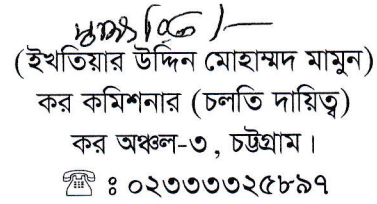 (ইখতিয়ার উদ্দিন মোহাম্মদ মামুন)
কর কমিশনার (চলতি দায়িত্ব)
কর অঞ্চল-৩, চট্টগ্রাম।
☎ : ০২৩৩৩৩২৫৮৯৭